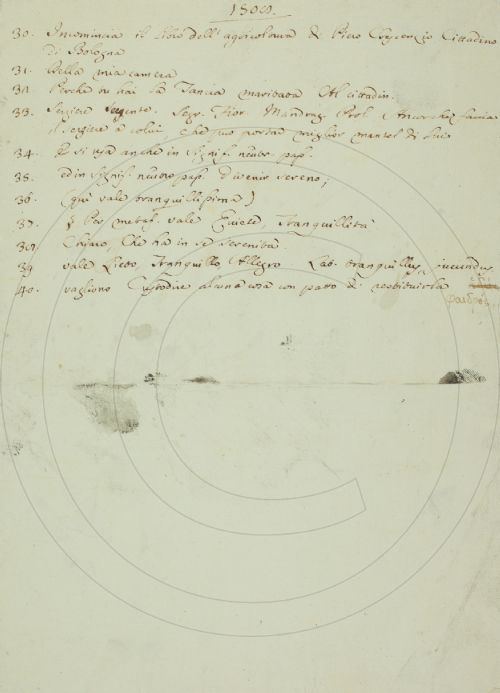 1309.
30. Incomincia il Libro dell' agricoltura di Piero Crescenzio Cittadino
di Bologna
31. Della mia camera
32. Perche tu hai la Tancia maritata Al cittadin.
33. Sergiere Sergente. Segr. Fior. Mandrag. Prol.
il sergiere a colui, che può portar miglior mantel di lui
34. E si usa anche in signif. neutro pass.
35. ed in signif. neutro pass. divenir sereno;
36. (qui vale tranquillissima)
37. § Per metaf. vale Quiete, Tranquillità
38. Chiaro, Che ha in se serenità.
39 vale Lieto, Tranquillo, Allegro Lat. tranquillus, jucundus
40. vagliono Custodire alcuna cosa con patto di restituirla